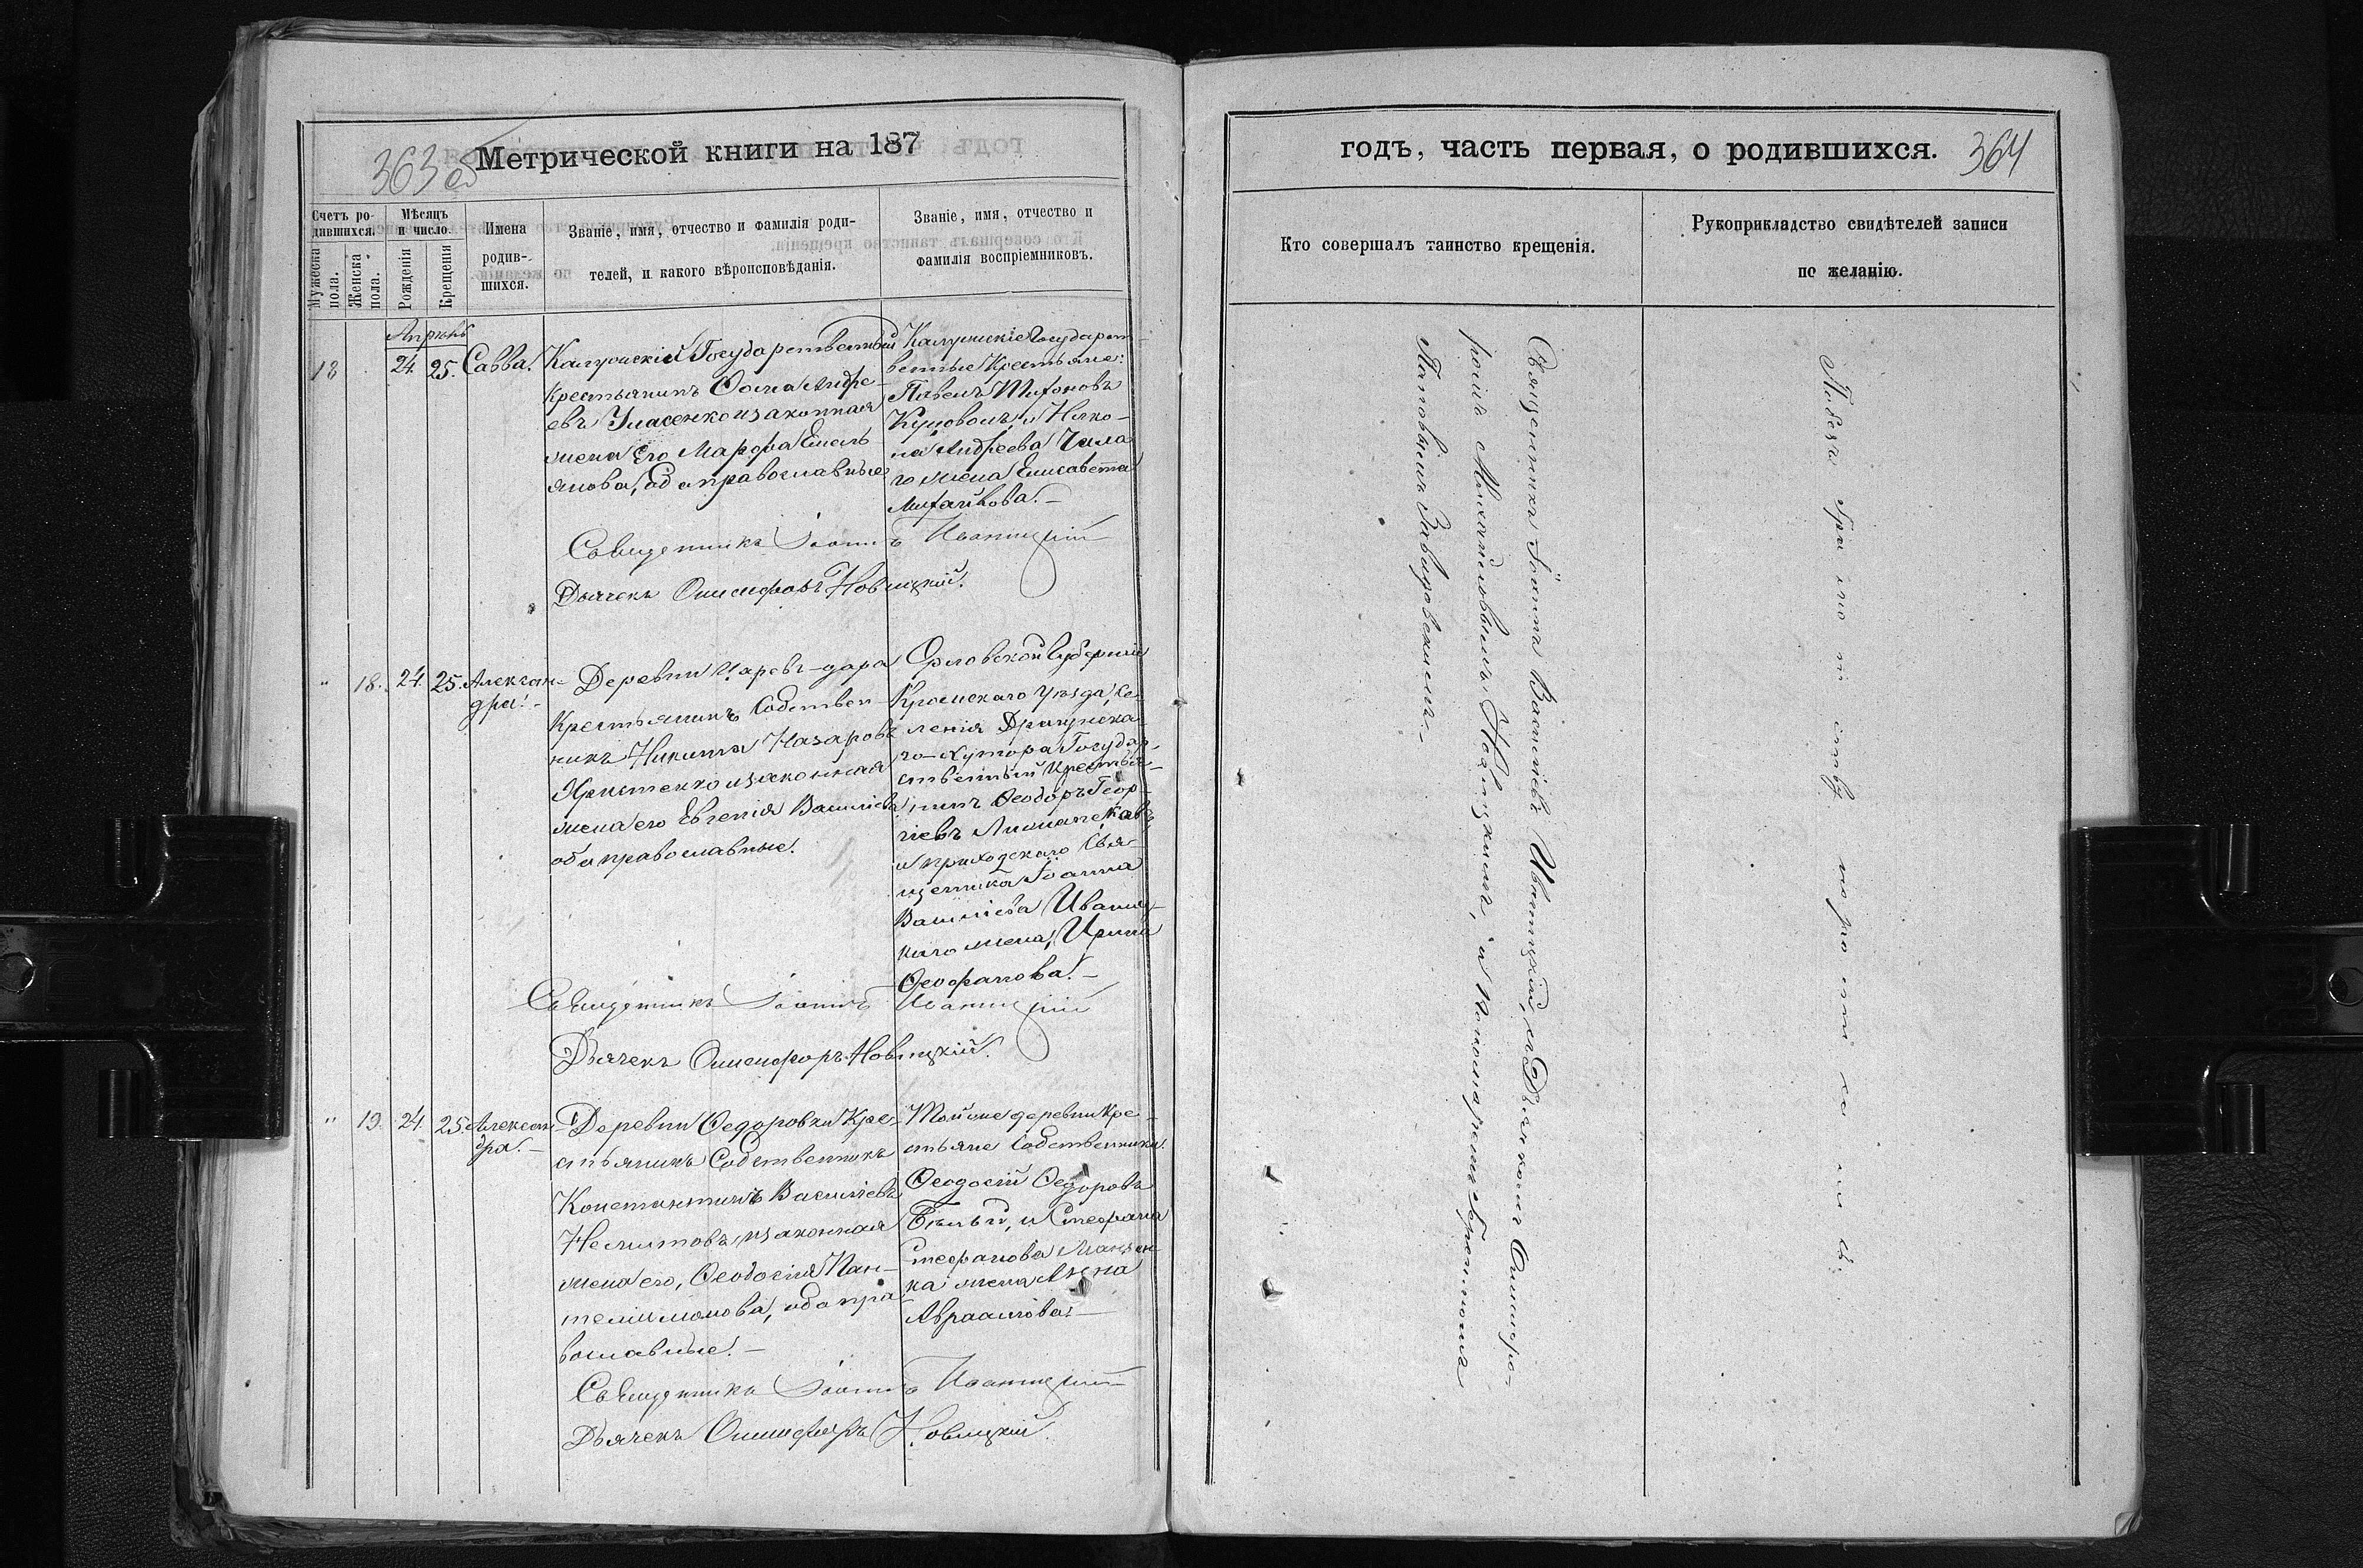 363 об
Метрической книги на 187
Счетъ ро-
дившихся.
Мѣсяцъ
и число.
Имена
родив-
шихся.
Званіе, имя, отчество и фамилія роди-
телей, и какого вѣроисповѣданія.
Званіе, имя, отчество и
фамилія воспріемниковъ.
Мужеска
пола.
Женска
пола.
Рожденія
Крещенія
Апрѣль
18
24.
25.
Савва.
Государственный
Крестьянинъ Ѳома Андре-
евъ Власенко и законная
жена его Марѳа Емель
янова, оба православные
Государст-
венные Крестьяне:
Павелъ
и
на Андреева
го жена Елисавета
Михайлова.
Священникъ Іоаннъ Иваницкій
Дьячекъ Онисифоръ Новицкій.
"
18.
24.
25.
Алексан-
дра.
Деревни Царевъ-дара
Крестьянинъ Собствен
никъ Никита Назаровъ
и законная
жена его Евгенія Василіева,
оба православные.
Орловской Губерніи
Кромскаго Уѣзда, се-
ленія
го Хутора Государ-
ственный Крестья-
нинъ Ѳеодоръ Геор-
гіевъ
и приходскаго Свя-
щенника Іоанна
Василіева Иваниц-
каго жена, Ирина
Ѳеофанова.
Священникъ Іоаннъ Иваницкій
Дьячекъ Онисифоръ Новицкій.
"
19.
24.
25.
Алексан-
дра.
Деревни Ѳедоровки Кре-
стьянинъ Собственникъ
Константинъ Василіевъ
и законная
жена его, Ѳеодосія Пан-
телиимонова, оба пра-
вославные.
Той же деревни Кре-
стьяне Собственники
Ѳеодосій Ѳедоровъ
Бѣлый, и Стефана
Стефанова
ка жена Анна
Авраамова.
Священникъ Іоаннъ Иваницкій
Дьячекъ Онисифоръ Новицкій
годъ, часть первая, о родившихся.
364
Кто совершалъ таинство крещенія.
Рукоприкладство свидѣтелей записи
по желанію.
Священникъ Іоаннъ Василіевъ Иваницкій, съ Дьячкомъ Онисифо-
ромъ Михайловымъ Новицкимъ, и Пономаремъ
Завадовскимъ.